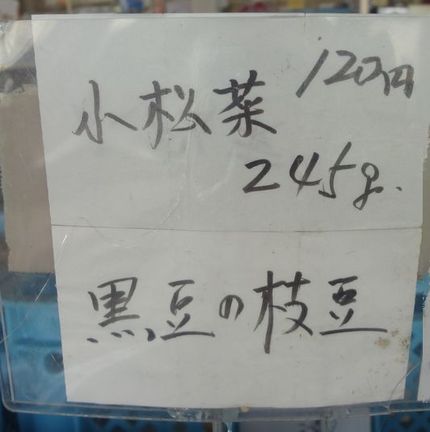 小松菜 120円
245g.
黒豆の枝豆